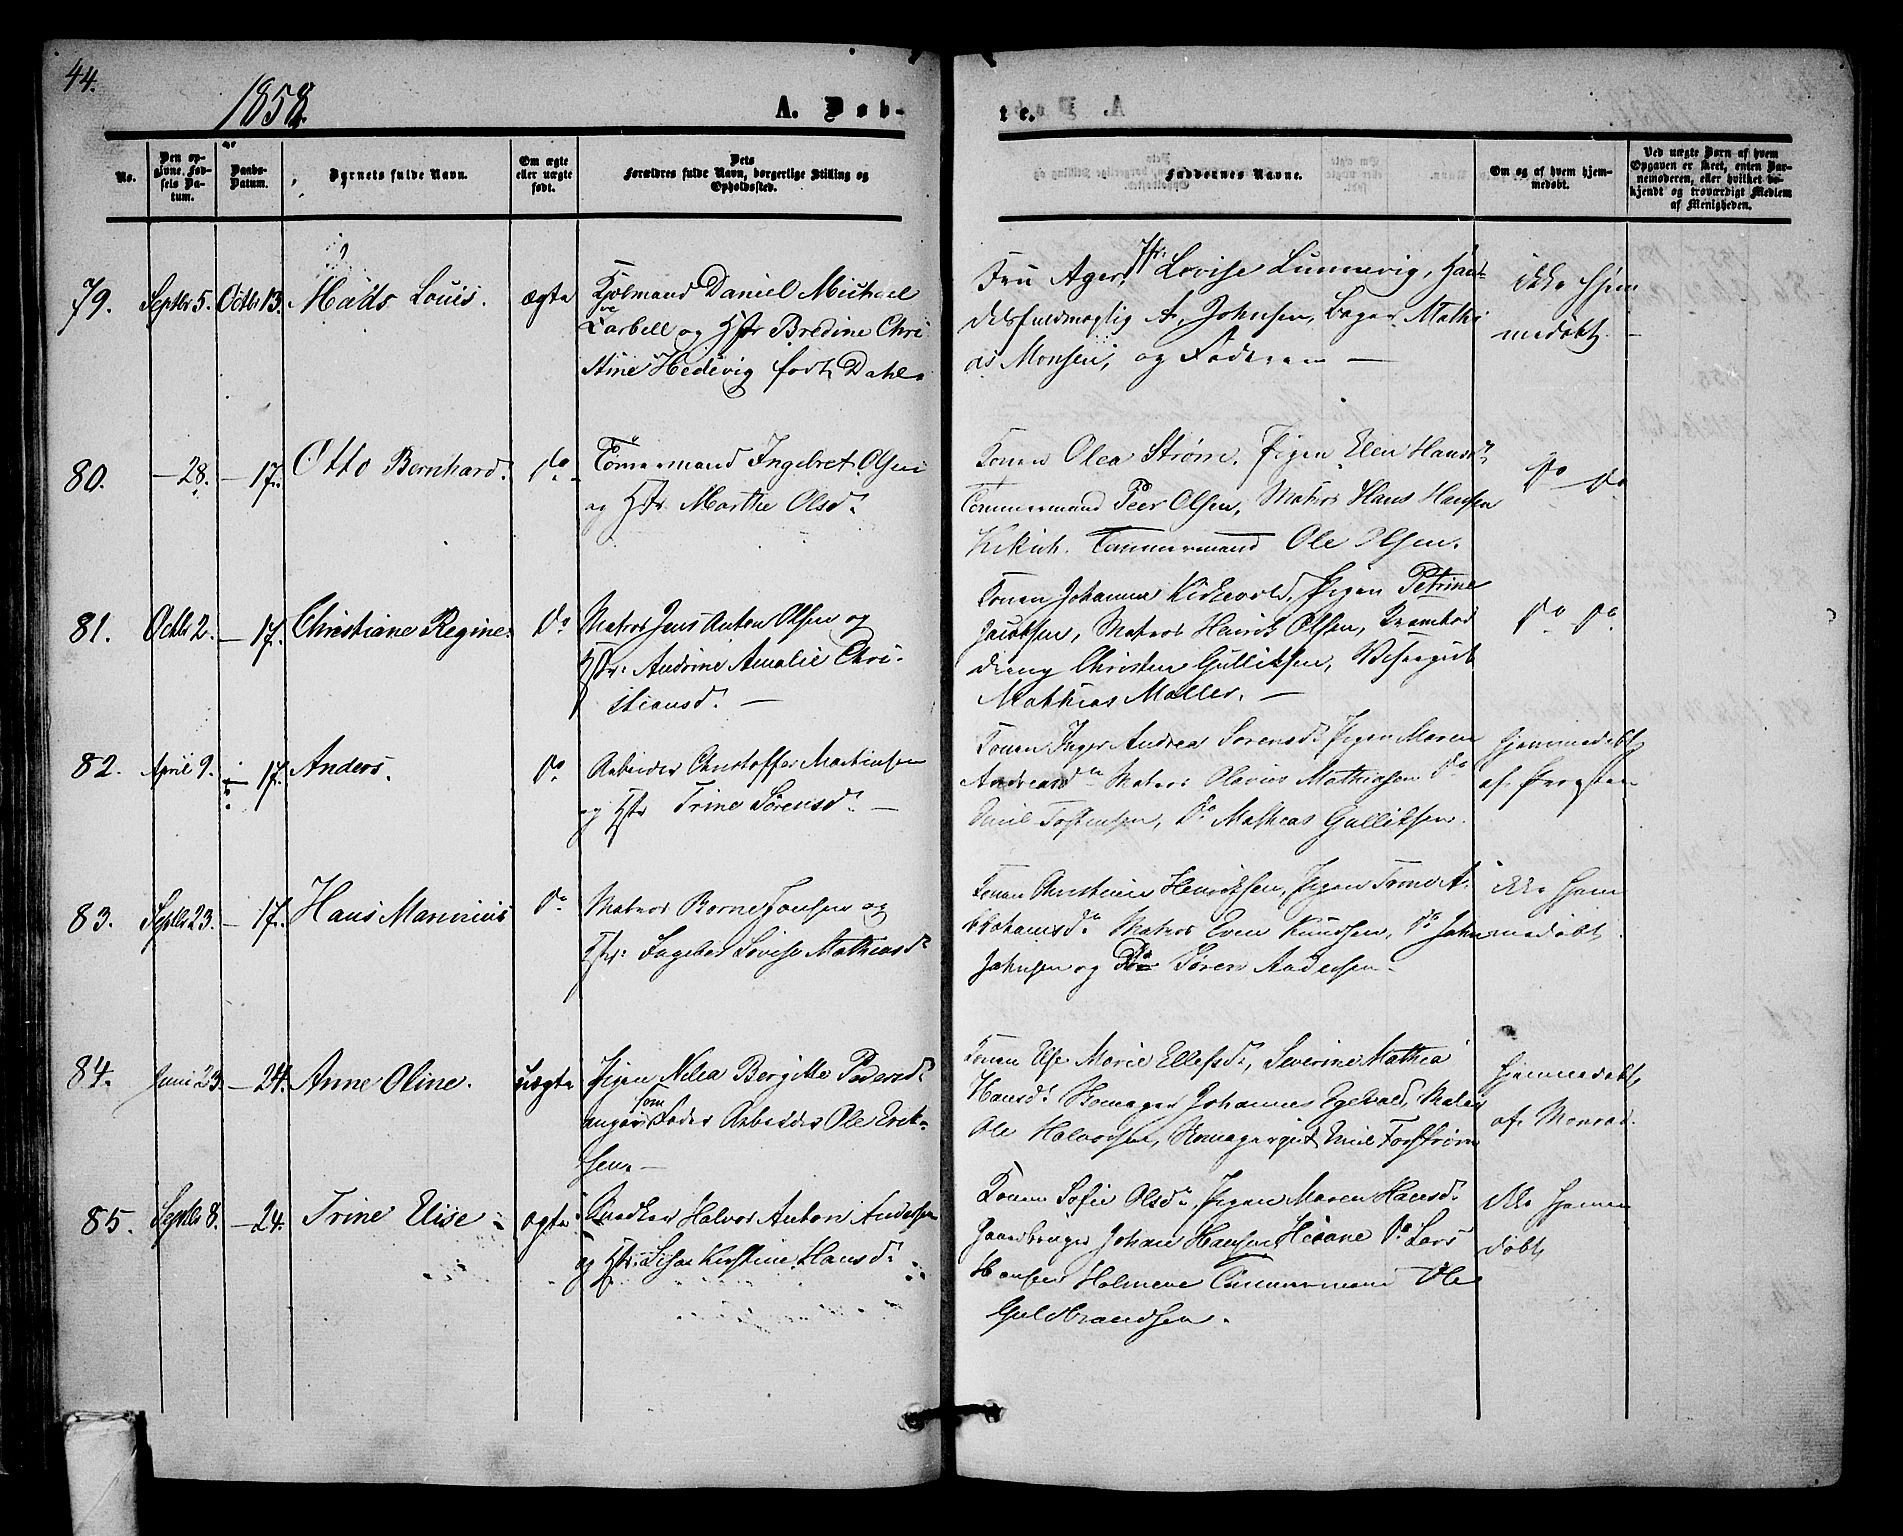 44.
1858.
A. Døb-
te.
No.
Den op-
givne Fød-
sels Da-
tum.
Daabs-
Datum.
Barnets fulde Navn.
Om ægte
eller uægte
født.
Dets
Forældres fulde Navn, borgerlige Stilling og
Opholdssted.
Faddernes Navne.
Om og af hvem hjem-
medøbt.
Ved uægte Børn af hvem
Opgaven er skeet, enten Bar-
nemoderen, eller hvilket be-
kjendt og troværdigt Medlem
af Menigheden.
79. Septbr 5. Octbr 13. Mads Louis. ægte
Daniel Michael
og Hstr Bredine Chri
stine Hedevig født Dahl.
Fru Ager, Lovise Lunnevig, Han-
delsfuldmægtig A. Johnsen, Bager Mathi
as Monsen, og Faderen —
ikke hjem
medøbt.
80. — 28. — 17. Otto Bernhard. do
Tømmermand Ingebret Olsen
og Hstr Marthe Olsdr.
Konen Olea Strøm, Pigen Elen Hansdr,
Tømmermand Peer Olsen, Matros Hans Hansen
Tømmermand Ole Olsen.
do do
81. Octbr 2. — 17. Christiane Regine. do
Matros Jens Anton Olsen og
Hstr. Andrine Amalie Chri-
stiansdr. —
Konen Johanne Pigen Petrine
Jacobsen, Matros Henrik Olsen,
dreng Christen Gulliksen,
Mathias Møller. —
do do
82. April 9. — 17. Anders. do
Arbeider Christoffer Martinsen
og Hstr Trine Sørensdr. —
Konen Inger Andrea Sørensdr Pigen Maren
Andreasdr Matros Olavus Mathiasen do
Emil Tostensen, do Mathias Gulliksen.
hjemmedøbt
af
83. Septbr 23. — 17. Hans Marinius do
Matros Børne Jonsen og
Hstr. Ingebor Lovise Mathiasdr
Konen Christine Henriksen, Pigen Trine A-
brahamsdr Matros Even Knudsen, do John
Johnsen og do Søren Andersen.
ikke hjem
medøbt.
84. Juni 23. — 24. Anne Oline. uægte
Pigen Nilea Bergitte Pedersdr
angivet som Fader Arbeider Ole Erik-
sen. —
Konen Else Marie Ellefsdr, Severine Mathea
Hansdr Johannes Matros
Ole Halvorsen, Emil Forstrøm
hjemmedøbt
af Monrad.
85. Septbr 8. — 24. Trine Elise ægte
Halvor Anton Andersen
og Hstr. Kirstine Hansdr
Konen Sofie Olsdr Pigen Maren Hansdr
Gaardbruger Johan Hansen do Lars
Hansen Holmene Tømmermand Ole
Guldbrandsen.
ikke hjemme
døbt